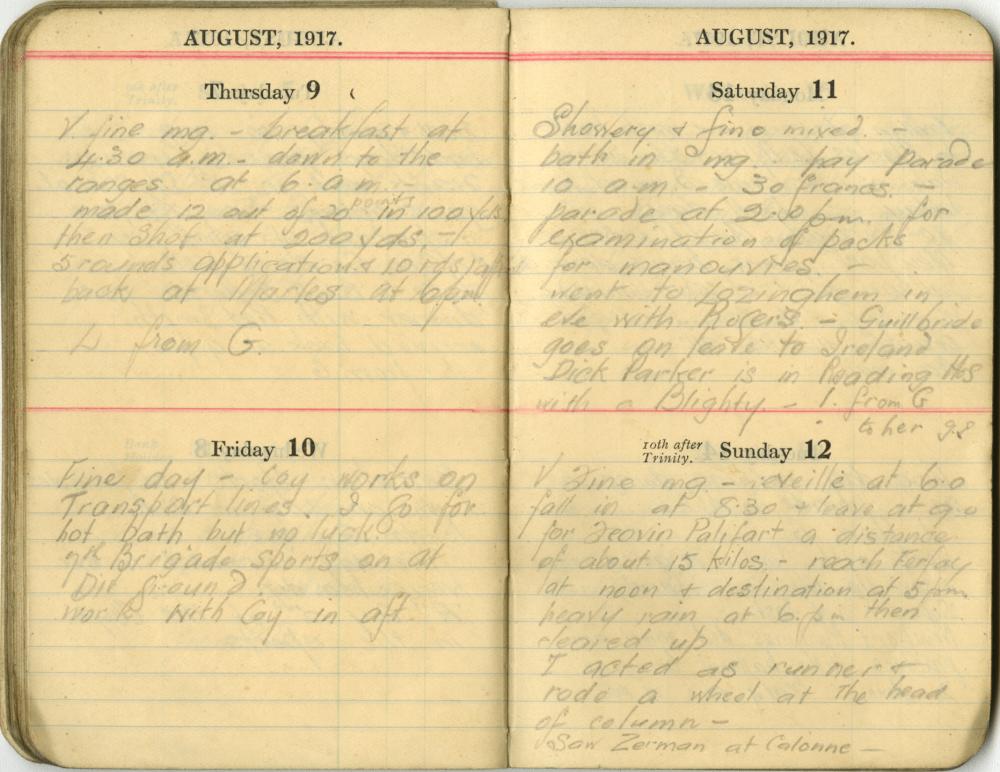 AUGUST, 1917.
Thursday 9
V. fine mg. - breakfast at
4.30 a.m. - down to the
ranges at 6. a.m. -
made 12 out of 20 points in 100 yds
then shot at 200 yds. -
5 rounds application & 10 rds
back at Marles at 6 pm
L from G.
Friday 10
Fine day - Coy works on
Transport lines. I go for
hot bath but no luck
7th Brigade sports on at
Div ground.
work with Coy in aft.
AUGUST, 1917.
Saturday 11
Showery & fine mixed. -
bath in mg. pay parade
10 a.m. - 30 francs. -
parade at 2.0 p.m. for
examination of packs
for manouvres. -
went to Lozinghem in
eve with Rogers. - Guillbride
goes on leave to Ireland
Dick Parker is in Reading Hos
with a Blighty. - l. from G
to her 98
10th after
Trinity. Sunday 12
V. Fine mg. - reveille at 6.0
fall in at 8.30 & leave at 9.0
for Palifart a distance
of about 15 kilos - reach Ferfay
at noon & destination at 5 pm
heavy rain at 6. pm then
cleared up
I acted as runner &
rode a wheel at the head
of column -
Saw Zerman at Calonne -